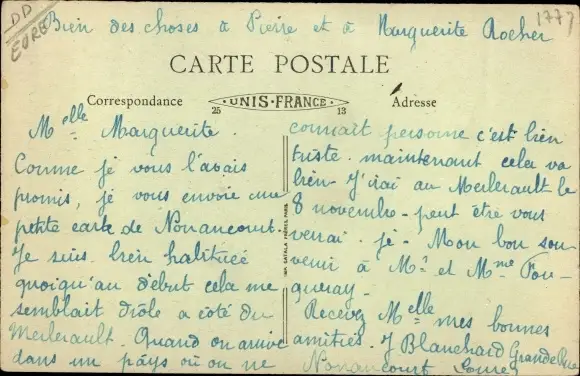 DD
EURE
1777
Bien des choses à Pierre et à Marguerite Rocher
CARTE POSTALE
Correspondance
UNIS-FRANCE
25 13
Adresse
Melle Marguerite.
Comme je vous l'avais
promis, je vous envoie une
petite carte de Nonancourt.
Je suis bien habituée
quoiqu'au début cela me
semblait drôle a côté du
Merlerault. Quand on arrive
dans un pays où on ne
IMP. CATALA FRÈRES PARIS
connait personne c'est bien
triste. maintenant cela va
bien J'irai au Merlerault le
8 novembre - peut être vous
verrai-je - Mon bon sou-
venir à Mr et Mme Fou-
queray -
Recevez Melle mes bonnes
amitiés. J Blanchard Grande Rue
Nonancourt Eure